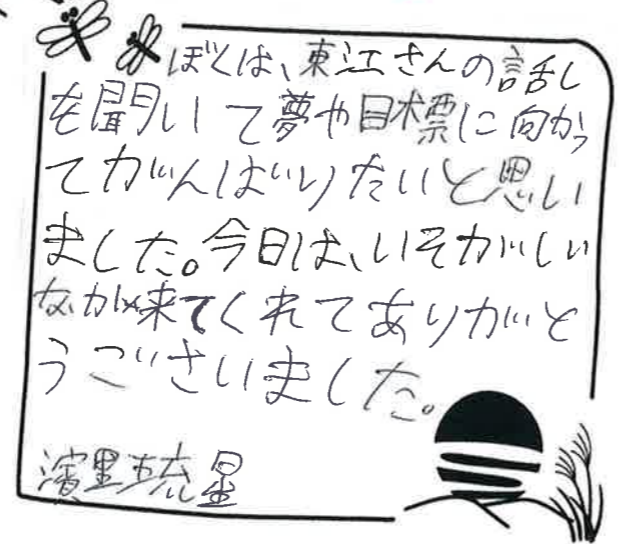 ぼくは、東江さんの話し
を聞いて夢や目標に向かっ
てがんばりたいと思い
ました。今日は、いそがしい
なか来てくれてありがと
うございました。
濱里琉星